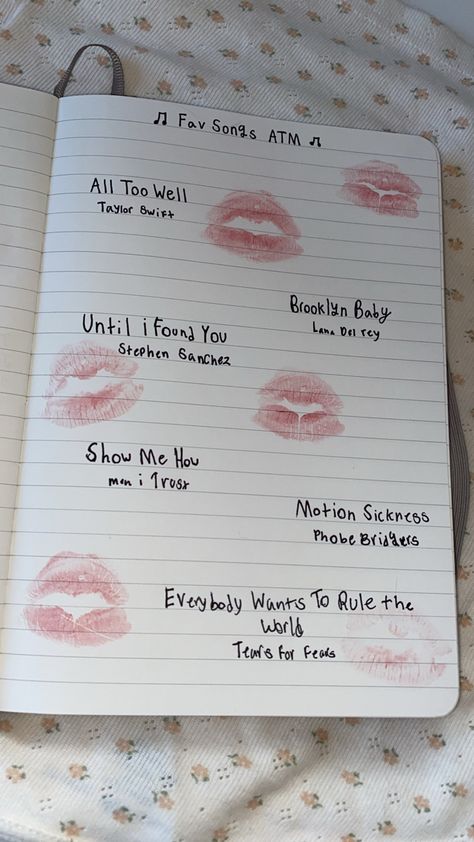 ♫ Fav Songs ATM ♫
All Too Well
Taylor Swift
Brooklyn Baby
Lana Del rey
Until i Found You
Stephen Sanchez
Show Me How
men i Trust
Motion Sickness
Phobe Bridgers
Everybody Wants To Rule the
World
Tears For Fears